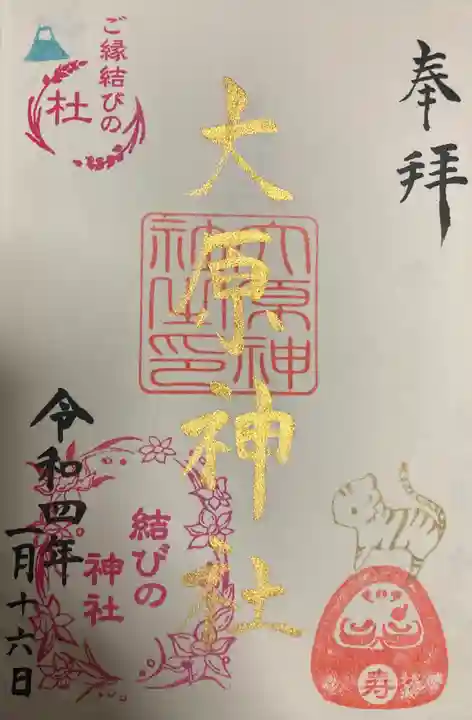 奉拝
大原神社
大原神社之印
ご縁結びの
杜
結びの
神社
寿
令和四年
一月十六日